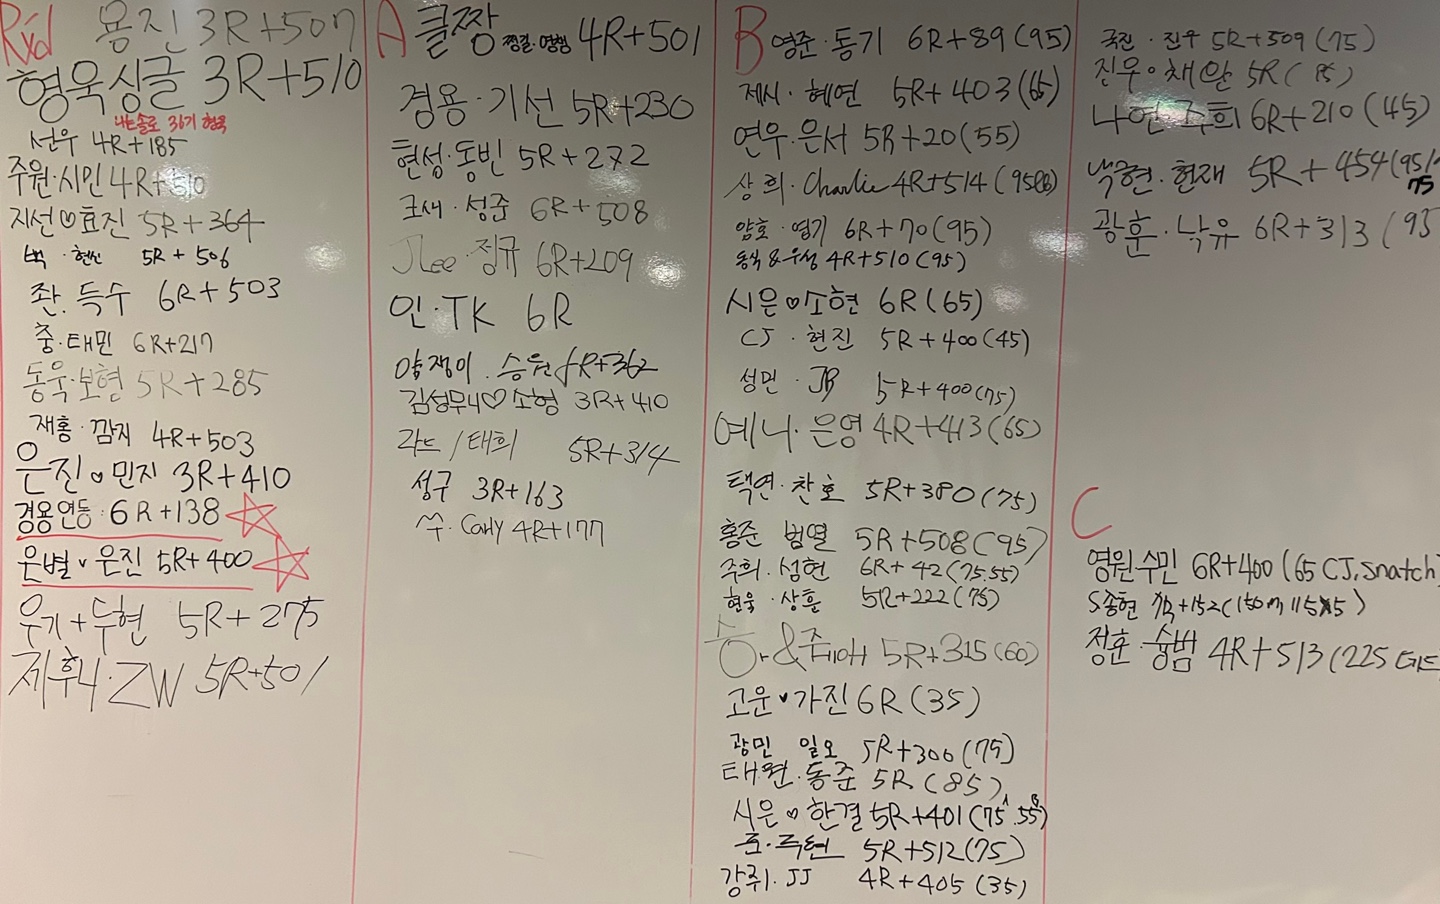 Rxd
용진 3R+507
형욱싱글 3R+510
나는솔로 36기 형욱
선우 4R+185
주원·시민 4R+510
지선♡효진 5R+364
빽·현신 5R+506
좌·득수 6R+503
중·태민 6R+217
동욱·보형 5R+285
재홍·깜지 4R+503
은진♡민지 3R+410
경용연동·6R+138 ☆
은별♥은진 5R+400 ☆
우기+두현 5R+275
제후니·ZW 5R+501
A
클짱 4R+501
경용·기선 5R+230
현성·동빈 5R+272
성준 6R+508
JLee·정규 6R+209
인·TK 6R
양쟁이·승원
김성무니♡소형 3R+410
라드/태희 5R+314
성구 3R+163
쑤·Carly 4R+177
B
영준·동기 6R+89(95)
제시·혜연 5R+403(65)
연우·은서 5R+20(55)
상희·Charlie 4R+514
양호·영기 6R+70(95)
동식&우성 4R+510(95)
시은♡소현 6R(65)
CJ·현진 5R+400(45)
성민·JB 5R+400(75)
예니·은영 4R+413(65)
택연·찬호 5R+380(75)
홍준 범열 5R+508(95)
주희·섬현 6R+42(75.55)
현욱·상훈 5R+222(75)
5R+315(60)
고운♥가진 6R(35)
광민 일오 5R+306(75)
태원·동준 5R(85)
시은♡한결 5R+401(75 A.55 B)
준·주현 5R+512(75)
강쥐·JJ 4R+405(35)
국진·진우 5R+509(75)
진우·채완 5R
나연·주희 6R+210(45)
낙현·현재 5R+454(95/
75
광훈·낙유 6R+313(95
C
영원·수민 6R+400(65 CJ.snatch)
S종현
정훈·슝범 4R+513(225